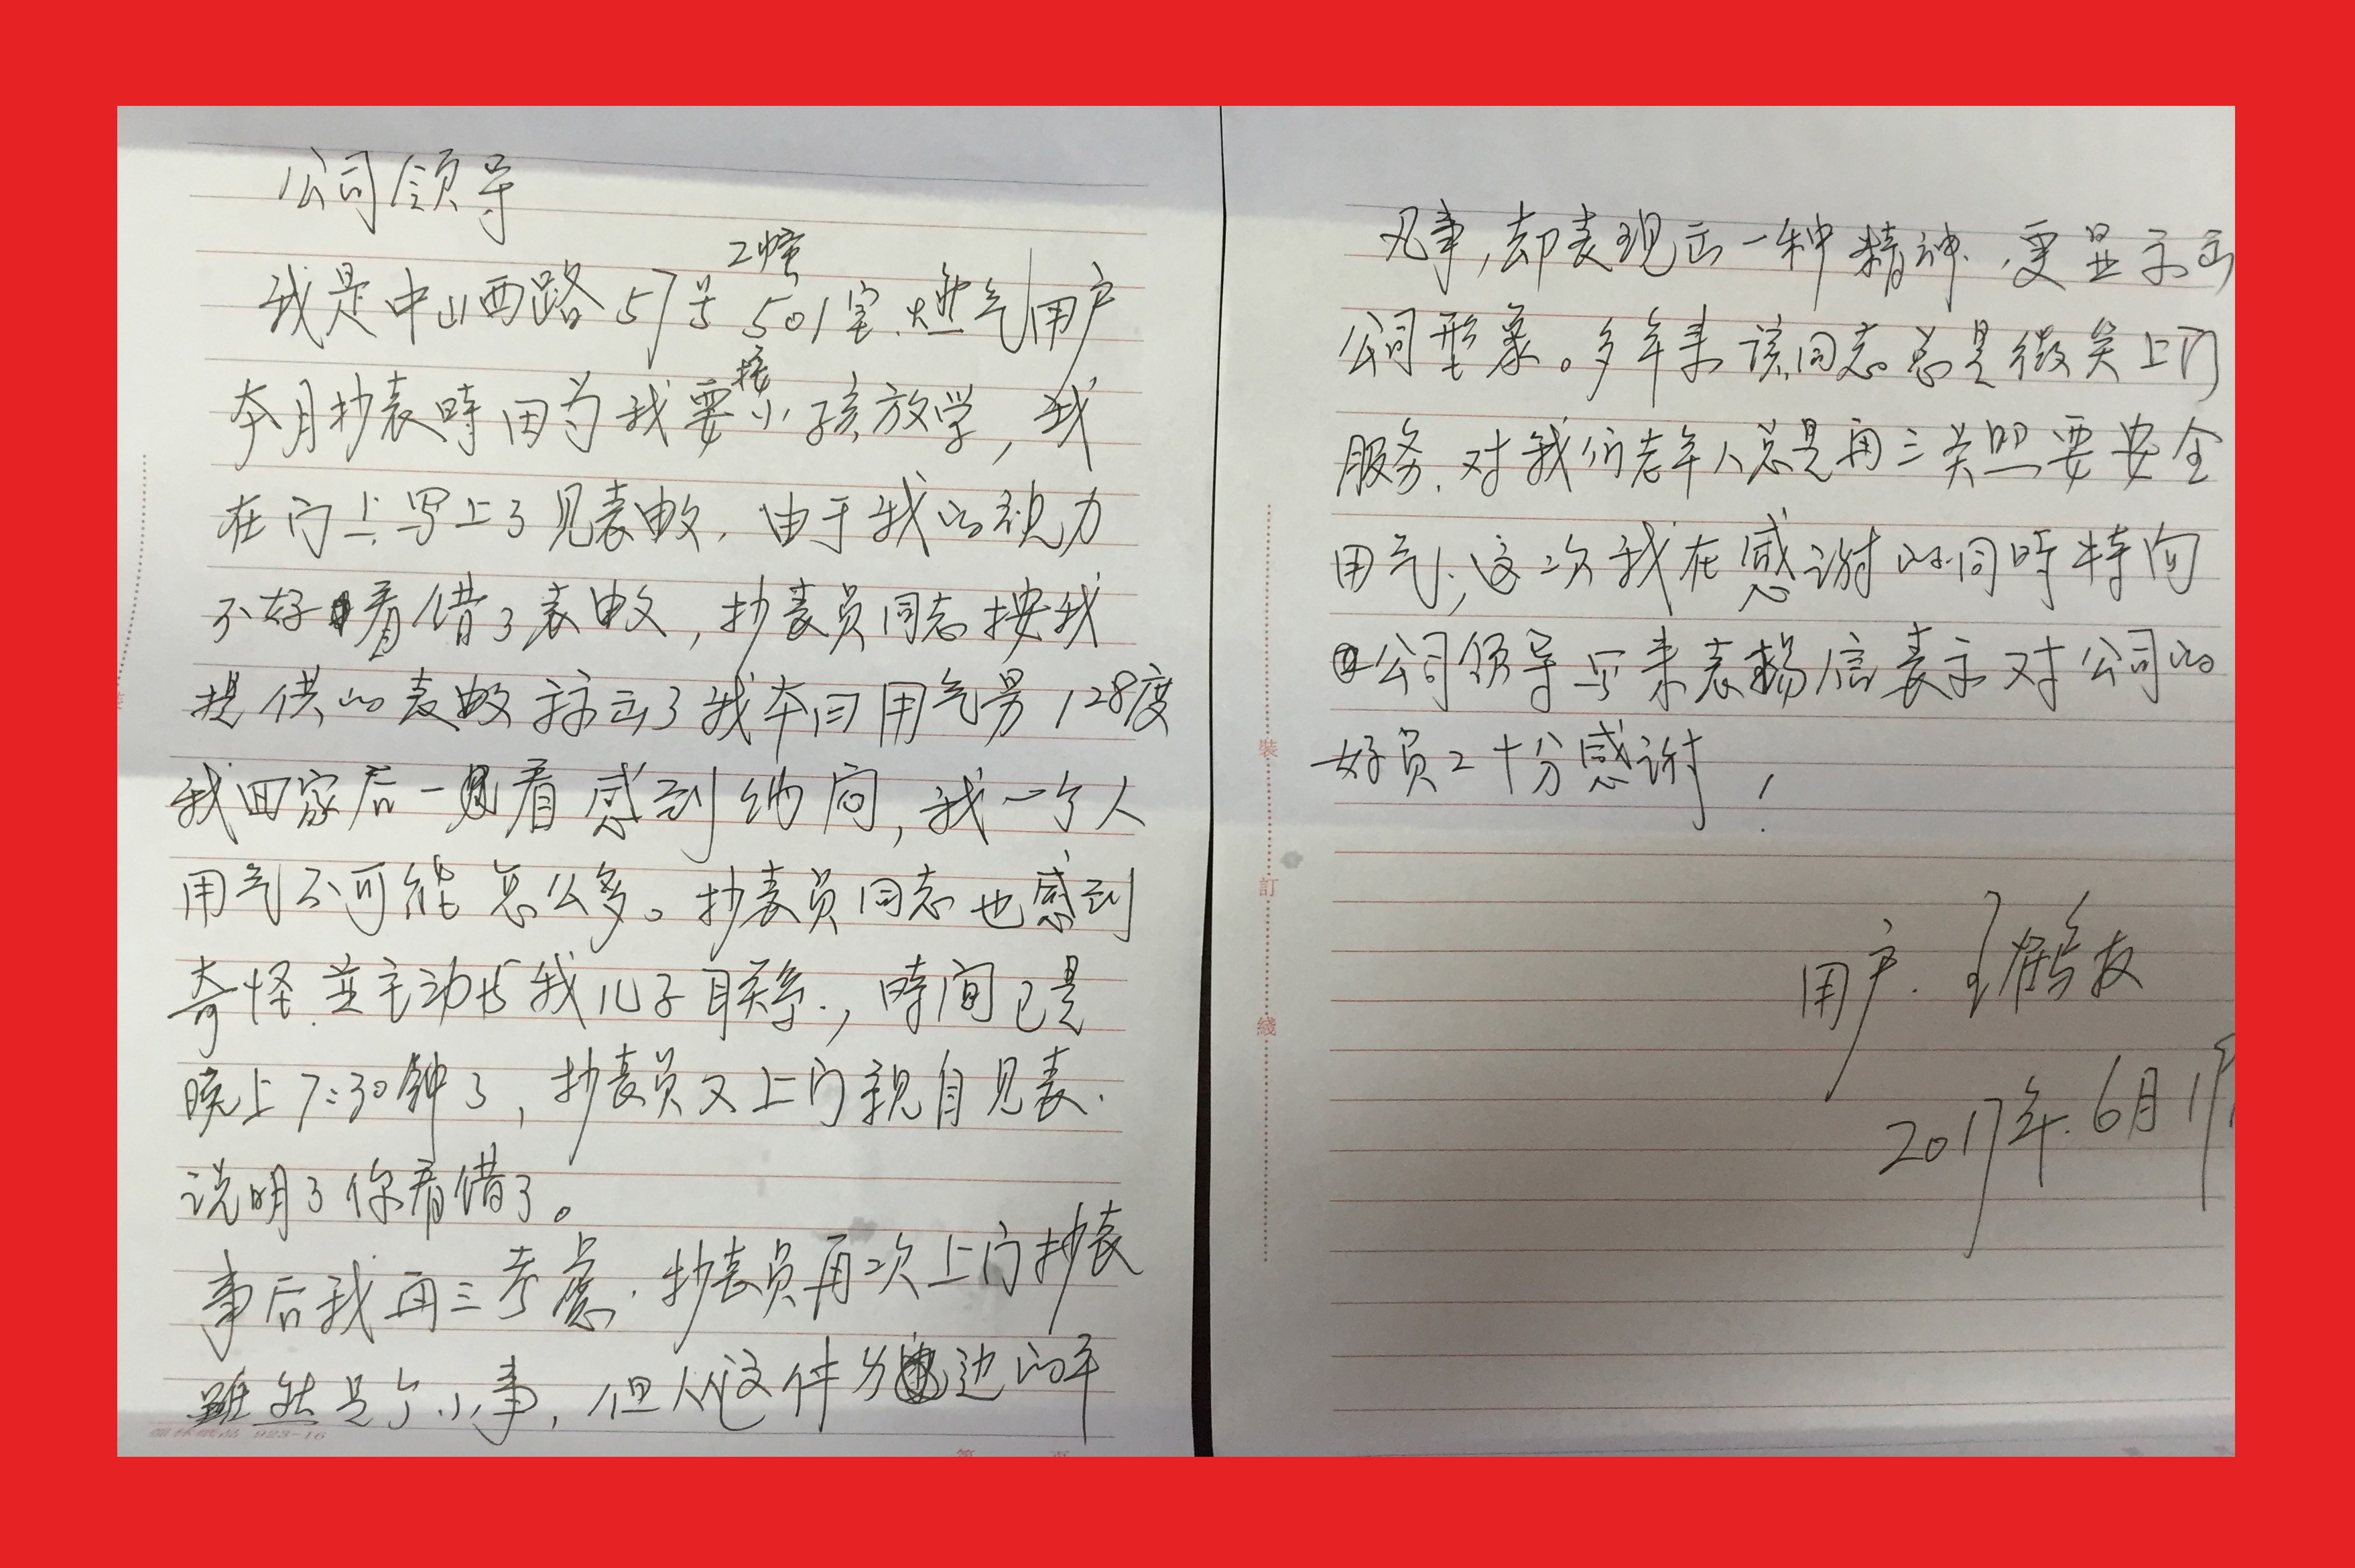 公司领导
我是中山西路57号2幢501室.燃气用户
本月抄表時因为我要接小孩放学，我
在门上写上了见表数.由于我的视力
不好看错了表数，抄表员同志按我
提供的表数示出了我本月用气另128度
我回家后一见看感到纳闷，我一个人
用气不可能怎么多。抄表员同志也感到
奇怪.并主动与我儿子联系.，時间已是
晚上7:30钟了，抄表员又上门親自见表.
说明了你看错了。
事后我再三考慮.抄表员再次上门抄表
雖然是个小事，但从这件 边的平
凡事，却表现出一种精神.，更显示出
公司形象。多年来该同志总是微笑上门
服务.对我们老年人总是再三关照要安全
用气，这次我在感谢的同時特向
公司领导写来表揚信表示对公司的
好员工十分感谢！
用户.王 友
2017年.6月1
裝
訂
綫
923-16